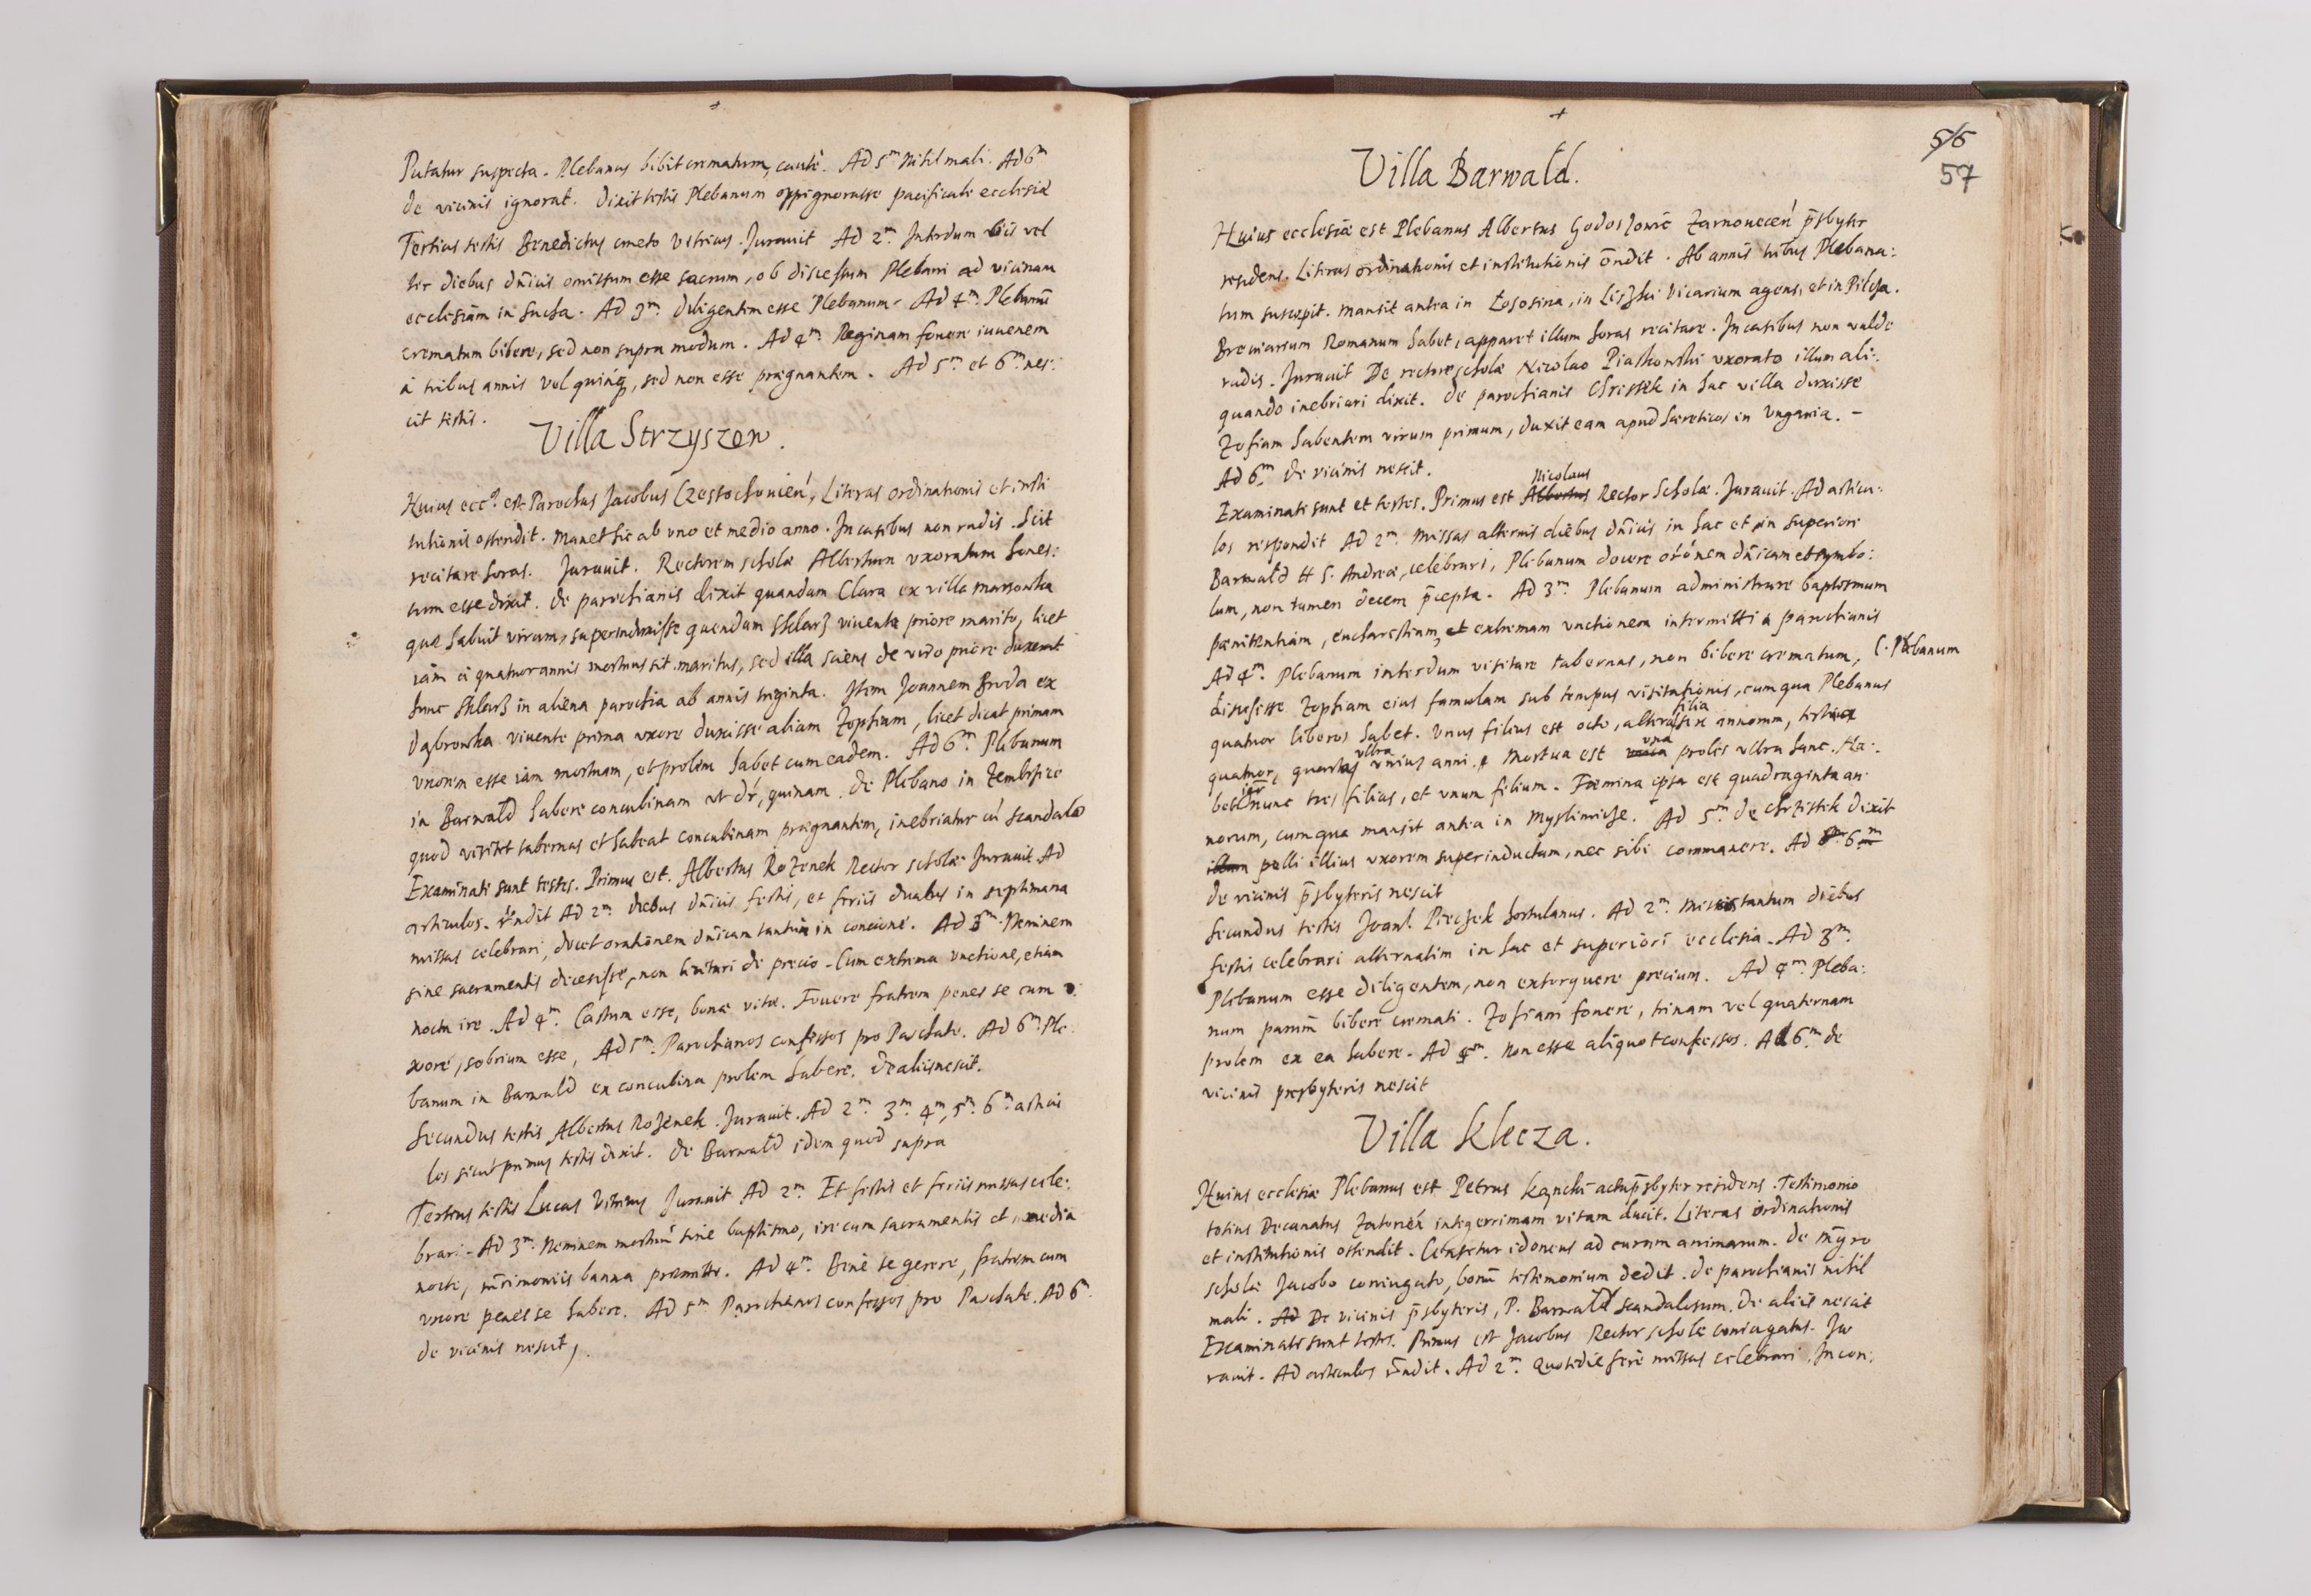 Putatur suspecta. Plebanus bibit crematum, cautè. Ad 5m nihil mali. Ad 6m
de vicinis ignorat. Dixit testis Plebanum oppignorasse pacificale ecclesiæ
Tertius testis Benedictus cmeto Vitricus. Jurauit Ad 2m. Interdum bis vel
ter diebus dnicis omissum esse sacrum, ob discessum Plebani ad vicinam
ecclesiam in Sucha. Ad 3m. diligentem esse Plebanum. Ad 4m. Plebanū
crematum bibere, sed non supra modum. Ad 4m. Reginam fouere iuuenem
à tribus annis vel quinq, sed non esse prægnantem. Ad 5m. et 6m. nes:
cit testis.
Villa Strzyszow.
Huius eccl. est Parochus Jacobus Czestochouien, Literas ordinationis et insti
tutionis ostendit. Manet hic ab vno et medio anno. In casibus non rudis. Scit
recitare horas. Jurauit. Rectorem scholæ Albertum vxoratum hones:
tum esse dixit. De parochianis dixit quandam Clara ex villa
quæ habuit virum, superinduxisse quendam viuente priore marito, licet
iam à quatuor annis mortuus sit maritus, sed illa sciens de viro priore duxerat
hunc in aliena parochia ab annis triginta. Item Joannem Broda ex
Dąbrowka viuente prima vxore duxisse aliam Zophiam, licet dicat primam
vxorem esse iam mortuam, et prolem habet cum eadem. Ad 6m. Plebanum
in Barwald habere concubinam vt dr, quinam. De Plebano in Zembrzice
quod visitet tabernas et habeat concubinam prægnantem, inebriatur cū scandalo
Examinati sunt testes. Primus est. Albertus Rozenek Rector scholæ Jurauit Ad
articulos. rndit Ad 2m. diebus dnicis festis, et feriis duabus in septimana
missas celebrari, docet orationem dnicam tantum in concione. Ad 3m. Neminem
sine sacramentis decessisse, non licitari de precio. Cum extrema vnctione, etiam
noctu ire. Ad 4m. Castum esse, bonæ vitæ. Fouere fratrem penes se cum v:
xore, sobrium esse, Ad 5m. Parochianos confessos pro Paschate. Ad 6m. Ple:
banum in Barwald ex concubina prolem habere. De aliis nescit.
Secundus testis Albertus Rozenek. Jurauit. Ad 2m. 3m. 4m, 5m. 6m. articu
los sicut primus testis dixit. De Barwald idem quod supra
Tertius testis Lucas Vitricus Jurauit Ad 2m. Et festis et feriis missas cele:
brari. Ad 3m. Neminem mortuū sine baptismo, ire cum sacramentis et media
nocte, mrimoniis banna præmittere. Ad 4m. Bene se gerere, fratrem cum
vxore penes se habere. Ad 5m Parochianos confessos pro Paschate. Ad 6m.
de vicinis nescit.
56
57
Villa Barwald.
Huius ecclesiæ est Plebanus Albertus Zarnouecen psbyter
residens. Literas ordinationis et institutionis ōndit. Ab annis tribus Plebana:
tum suscepit. Mansit antea in Łososina, in Liszki Vicarium agens, et in Pilcza.
Breuiarium Romanum habet, apparet illum horas recitare. In casibus non valde
rudis. Jurauit De rectore scholæ Nicolao Piaskowski vxorato illum ali:
quando inebriari dixit. De parochianis Chrissek in hac villa duxisse
Zofiam habentem virum primum, duxit eam apud hæreticos in Vngaria. –
Ad 6m. De vicinis nescit.
Examinati sunt et testes. Primus est Albertus Nicolaus Rector Scholæ. Jurauit. Ad articu:
los respondit Ad 2m. Missas alternis diebus dnicis in hac et in superiore
Barwald tt S. Andreæ, celebrari, Plebanum docere orōnem dnicam et symbo:
lum, non tamen decem pcepta. Ad 3m. Plebanum administrare baptismum
pænitentiam, eucharistiam, et extremam vnctionem intermitti à parochianis
Ad 4m. Plebanum interdum visitare tabernas, non bibere crematum, (. Plebanum
dispulisse Zophiam eius famulam sub tempus visitationis, cum qua Plebanus
quatuor liberos habet. Vnus filius est octo, altera filia sex annorum, tertia
quatuor, quarta vltra vnius anni. Mortua est vna proles vltra hanc. Ha:
bet nunc tres filias, et vnum filium. Fæmina ipsa est quadraginta an
norum, cum qua mansit antea in Myslimicze. Ad 5m. de Chrzistek dixit
illam pelli illius vxorem superinductam, nec sibi commanere. Ad 6m
de vicinis psbyteris nescit
Secundus testis Joan. Pieczek hortulanus. Ad 2m. Missas tantum diebus
festis celebrari alternatim in hac et superiori ecclesia. Ad 3m.
Plebanum esse diligentem, non extorquere precium. Ad 4m. Pleba:
num parum bibere cremati. Zofiam fouere, trinam vel quaternam
prolem ex ea habere. Ad 5m. Non esse aliquot confessos. Ad 6m. de
vicinis presbyteris nescit
Villa Klecza.
Huius ecclesiæ Plebanus est Petrus psbyter residens. Testimonio
totius Decanatus Zatorien integerrimam vitam ducit. Literas ordinationis
et institutionis ostendit. Censetur idoneus ad curam animarum. De mgro
scholæ Jacobo coniugato, bonū testimonium dedit. De parochianis nihil
mali. Ad De vicinis psbyteris, P. Barwald scandalosum. De aliis nescit
Examinati sunt testes. Primus est Jacobus Rector scholæ coniugatus. Ju
rauit. Ad articulos rndit. Ad 2m. Quotidie fere missas celebrari. In con: